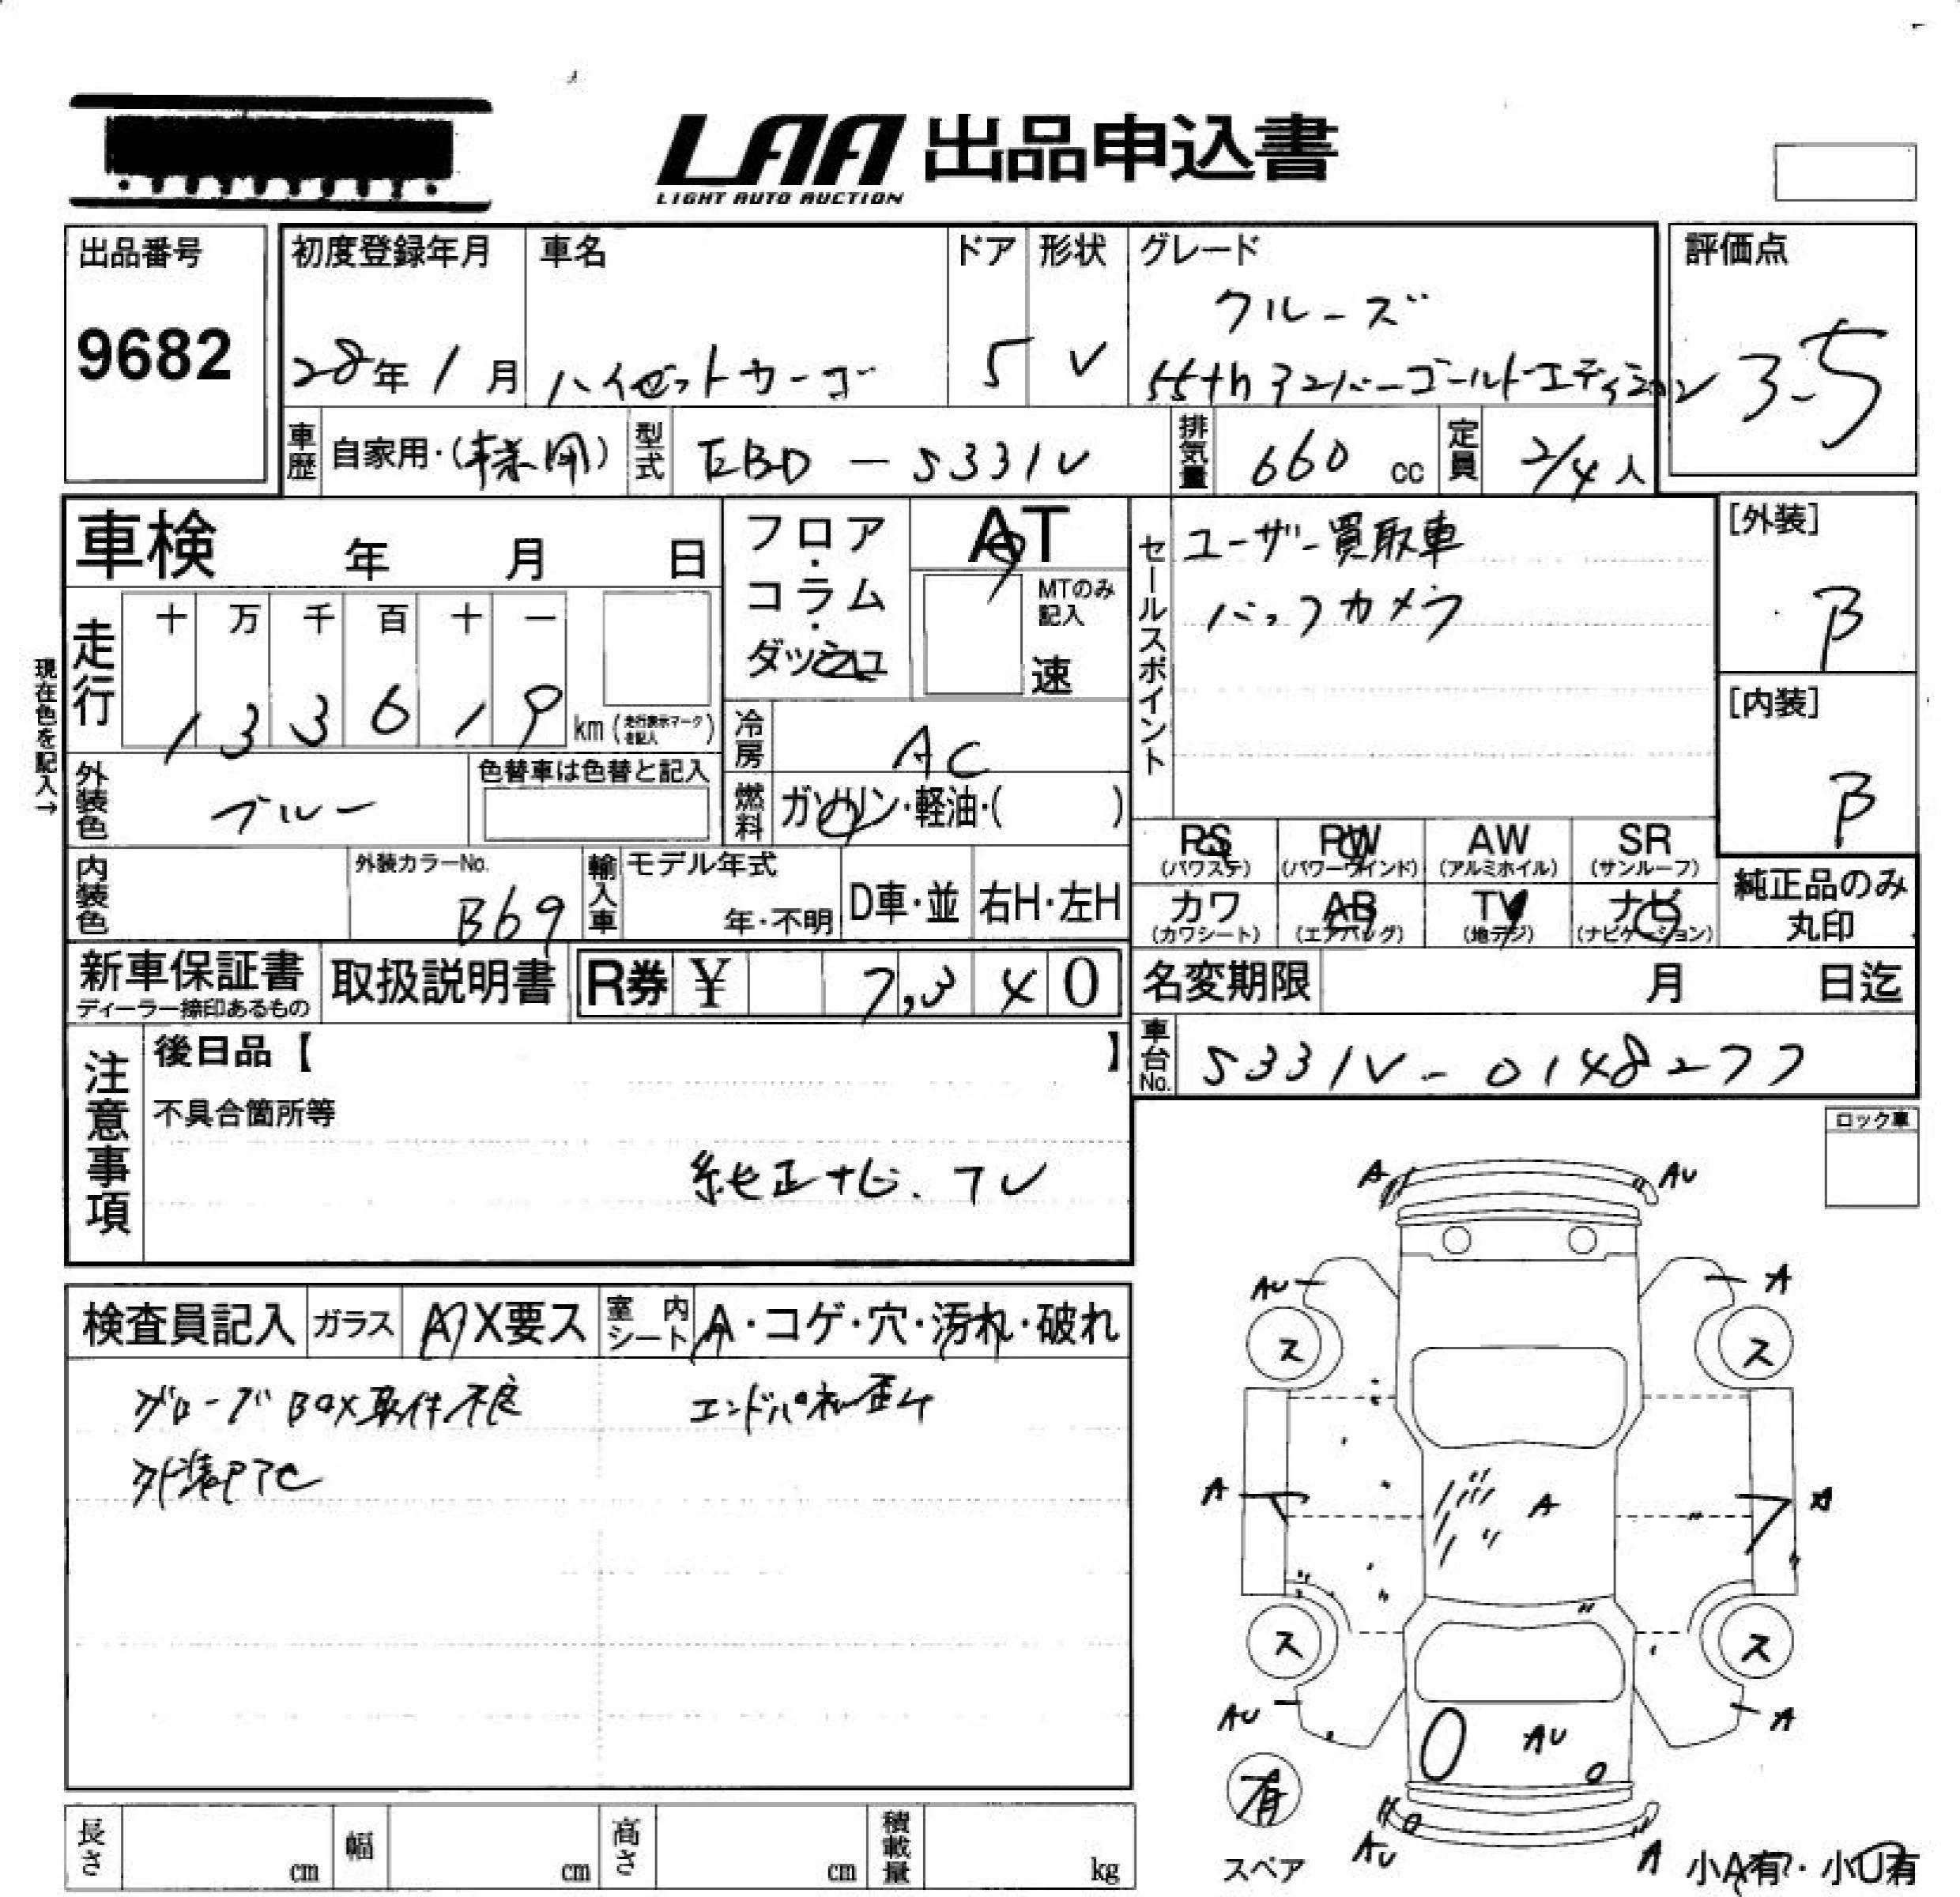 LAA 出品申込書
LIGHT AUTO AUCTION
出品番号
9682
初度登録年月 車名 ドア 形状 グレード 評価点
クルーズ
28年 1月 ハイゼットカーゴ 5 V 55thアニバーゴールドエディション 3.5
車歴 自家用・(事業用) 型式 EBD-S331V 排気量 660 cc 定員 2/4人
車検 年 月 日
フロア・コラム・ダッシュ
AT
MTのみ記入
速
走行 十 万 千 百 十 一
1 3 3 6 1 9 km(走行表示マークを記入)
現在色を記入→
セールスポイント
ユーザー買取車
バックカメラ
[外装]
B
[内装]
B
冷房 AC
外装色 ブルー 色替車は色替と記入
燃料 ガソリン・軽油・( )
内装色 外装カラーNo. B69
輸入車 モデル年式 年・不明 D車・並 右H・左H
PS (パワステ) PW (パワーウインド) AW (アルミホイル) SR (サンルーフ)
カワ (カワシート) AB (エアバッグ) TV (地デジ) ナビ (ナビゲーション)
純正品のみ丸印
新車保証書 ディーラー捺印あるもの 取扱説明書 R券 ¥ 7,340
名変期限 月 日迄
車台No. S331V-0148277
注意事項
後日品【 】
不具合箇所等
純正ナビ、TV
ロック車
検査員記入 ガラス A/X要ス 室内シート A・コゲ・穴・汚れ・破れ
グローブBOX取付不良 エンドパネル歪ム
外装PTC
A AU
AU A
ス ス
A A A
ス ス
AU AU A
有
スペア
AU A
小A有・小U有
長さ cm 幅 cm 高さ cm 積載量 kg